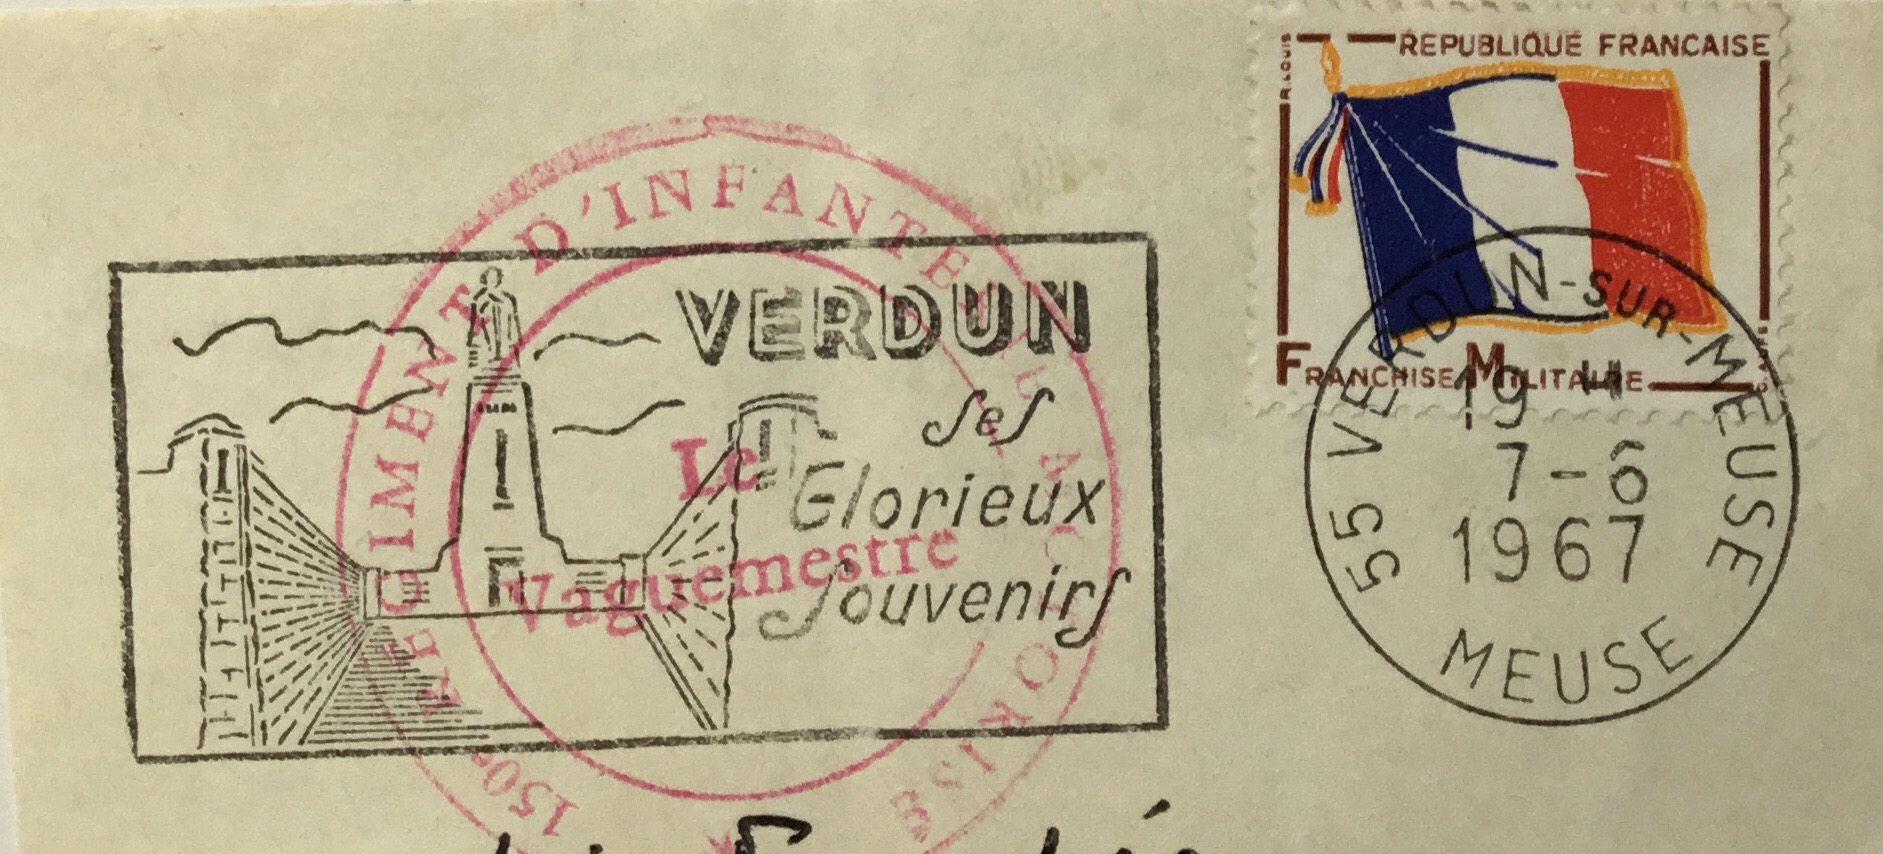 R.LOUIS
REPUBLIQUE FRANCAISE
FRANCHISE MILITAIRE
55 VERDUN-SUR-MEUSE
19 H
7-6
1967
MEUSE
VERDUN
ses
Glorieux
Souvenirs
150e REGIMENT D'INFANTERIE MOTORISE
Le
Vaguemestre